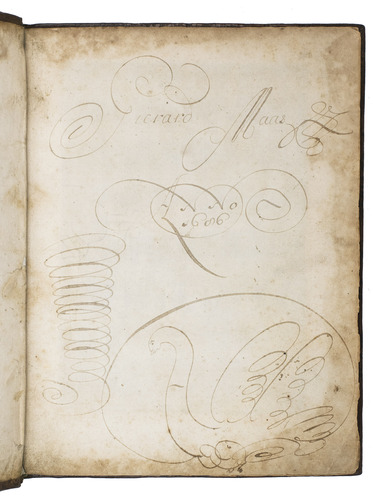 Gerard Maas
ANNO
1686